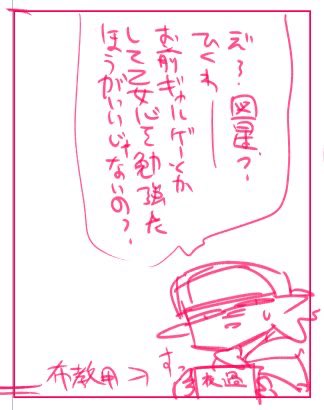 え?図星?
ひくわー
お前ギャルゲーとか
して乙女心を勉強した
ほうがいいじゃないの?
布教用→
すっ